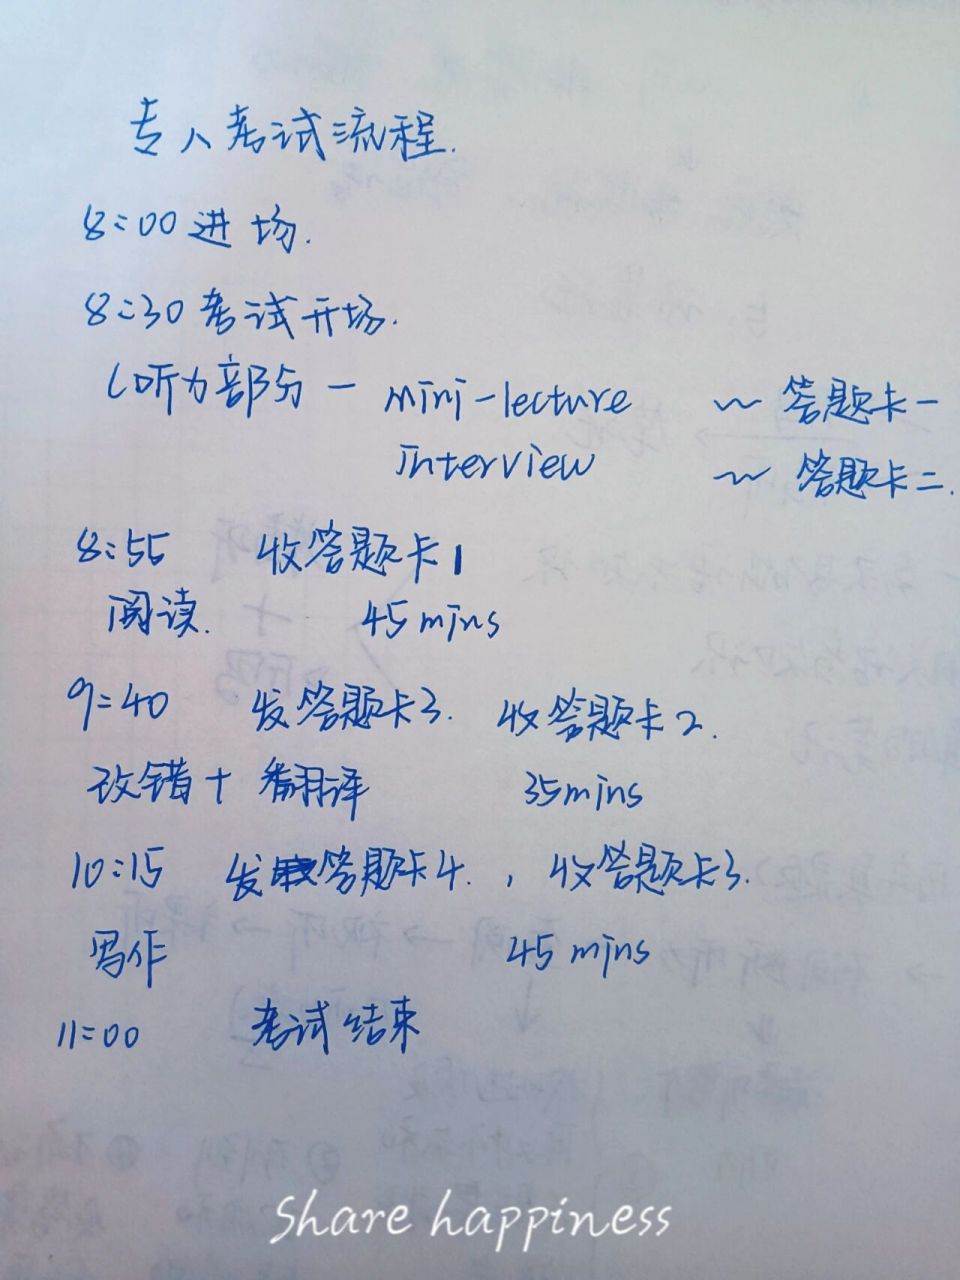 专八考试流程.
8:00 进场.
8:30 考试开场.
(听力部分 — mini-lecture ~ 答题卡一
interview ~ 答题卡二.
8:55 收答题卡1
阅读. 45 mins
9:40 发答题卡3. 收答题卡2.
改错+翻译 35mins
10:15 发答题卡4. , 收答题卡3.
写作 45 mins
11:00 考试结束
Share happiness